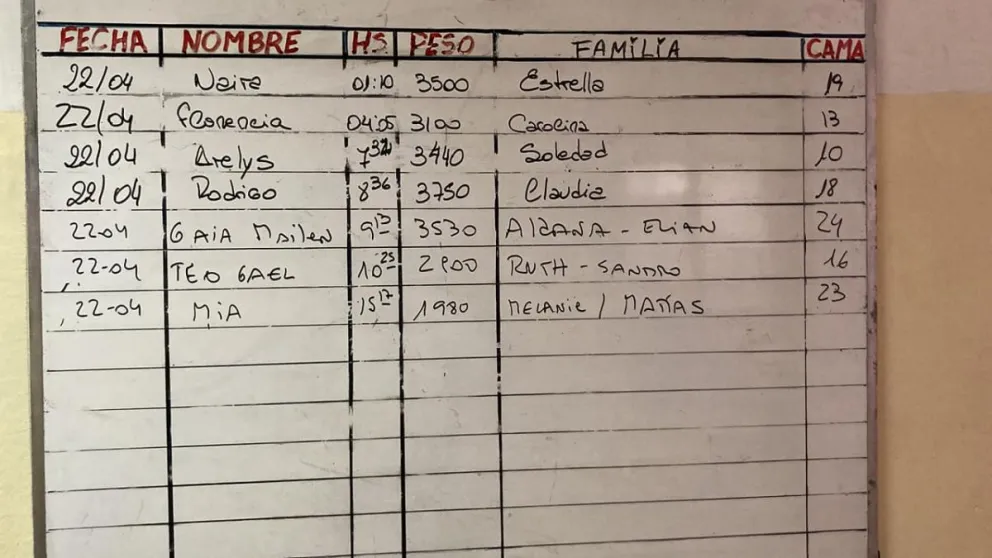 FECHA NOMBRE HS PESO FAMILIA CAMA
22/04 Naira 01:10 3500 Estrella 19
22/04 Florencia 04:05 3100 Carolina 13
22/04 Arelys 7 32 3440 Soledad 10
22/04 Rodrigo 8 36 3750 Claudia 18
22-04 GAIA Mailen 9 13 3530 AldANA - ELIAN 24
22-04 TEO GAEL 10 25 2900 RUTH - SANDRO 16
22-04 MiA 15 17 1980 MELANiE / MATIAS 23